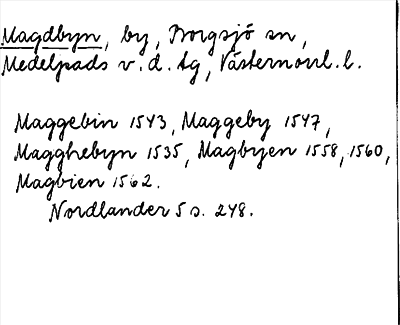 Magdbyn, by, Borgsjö sn,
Medelpads v. d. tg, Västernorrl. l.
Maggebin 1543, Maggeby 1547,
Magghebyn 1535, Magbyen 1558, 1560,
Magbien 1562.
Nordlander 5 s. 248.